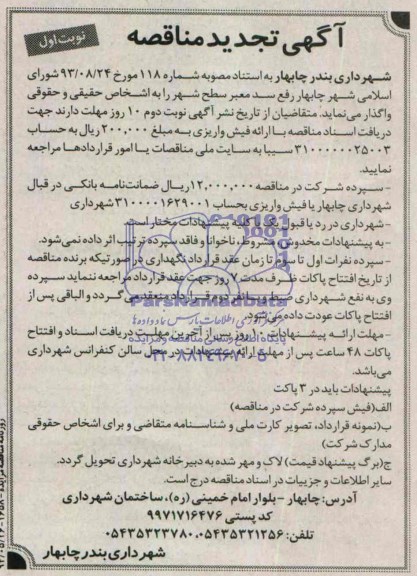 آگهی تجدید مناقصه
نوبت اول
شهرداری بندر چابهار به استناد مصوبه شماره ۱۱۸ مورخ ۹۳/۰۸/۲۴ شورای
اسلامی شهر چابهار رفع سد معبر سطح شهر را به اشخاص حقیقی و حقوقی
واگذار می‌نماید. متقاضیان از تاریخ نشر آگهی نوبت دوم ۱۰ روز مهلت دارند جهت
دریافت اسناد مناقصه با ارائه فیش واریزی به مبلغ ۲۰۰,۰۰۰ ریال به حساب
۳۱۰۰۰۰۰۰۲۵۰۰۳ سیبا به سایت ملی مناقصات یا امور قراردادها مراجعه
نمایید.
- سپرده شرکت در مناقصه ۱۲,۰۰۰,۰۰۰ ریال ضمانت‌نامه بانکی در قبال
شهرداری چابهار یا فیش واریزی بحساب ۳۱۰۰۰۰۱۶۲۹۰۰۱ شهرداری
- شهرداری در رد یا قبول یک یا کلیه پیشنهادات مختار است.
- به پیشنهادات مخدوش، مشروط، ناخوانا و فاقد سپرده ترتیب اثر داده نمی‌شود.
- سپرده نفرات اول تا سوم تا زمان عقد قرارداد نگهداری در صورتیکه برنده مناقصه
از تاریخ افتتاح پاکات ظرف مدت ۷ روز جهت عقد قرارداد مراجعه ننماید سپرده
وی به نفع شهرداری ضبط و با نفر دوم قرارداد منعقد می‌گردد و الباقی پس از
افتتاح پاکات عودت داده می‌شود.
- مهلت ارائه پیشنهادات ۱۰ روز پس از آخرین مهلت دریافت اسناد و افتتاح
پاکات ۴۸ ساعت پس از مهلت ارائه پیشنهادات در محل سالن کنفرانس شهرداری
می‌باشد.
پیشنهادات باید در ۳ پاکت
الف(فیش سپرده شرکت در مناقصه)
ب(نمونه قرارداد، تصویر کارت ملی و شناسنامه متقاضی و برای اشخاص حقوقی
مدارک شرکت)
ج(برگ پیشنهاد قیمت) لاک و مهر شده به دبیرخانه شهرداری تحویل گردد.
سایر اطلاعات و جزییات در اسناد مناقصه درج است.
آدرس: چابهار - بلوار امام خمینی (ره)، ساختمان شهرداری
کد پستی ۹۹۷۱۷۱۶۴۷۶
تلفن: ۰۵۴۳۵۳۲۱۲۵۶، ۰۵۴۳۵۳۲۳۷۸۰
شهرداری بندر چابهار